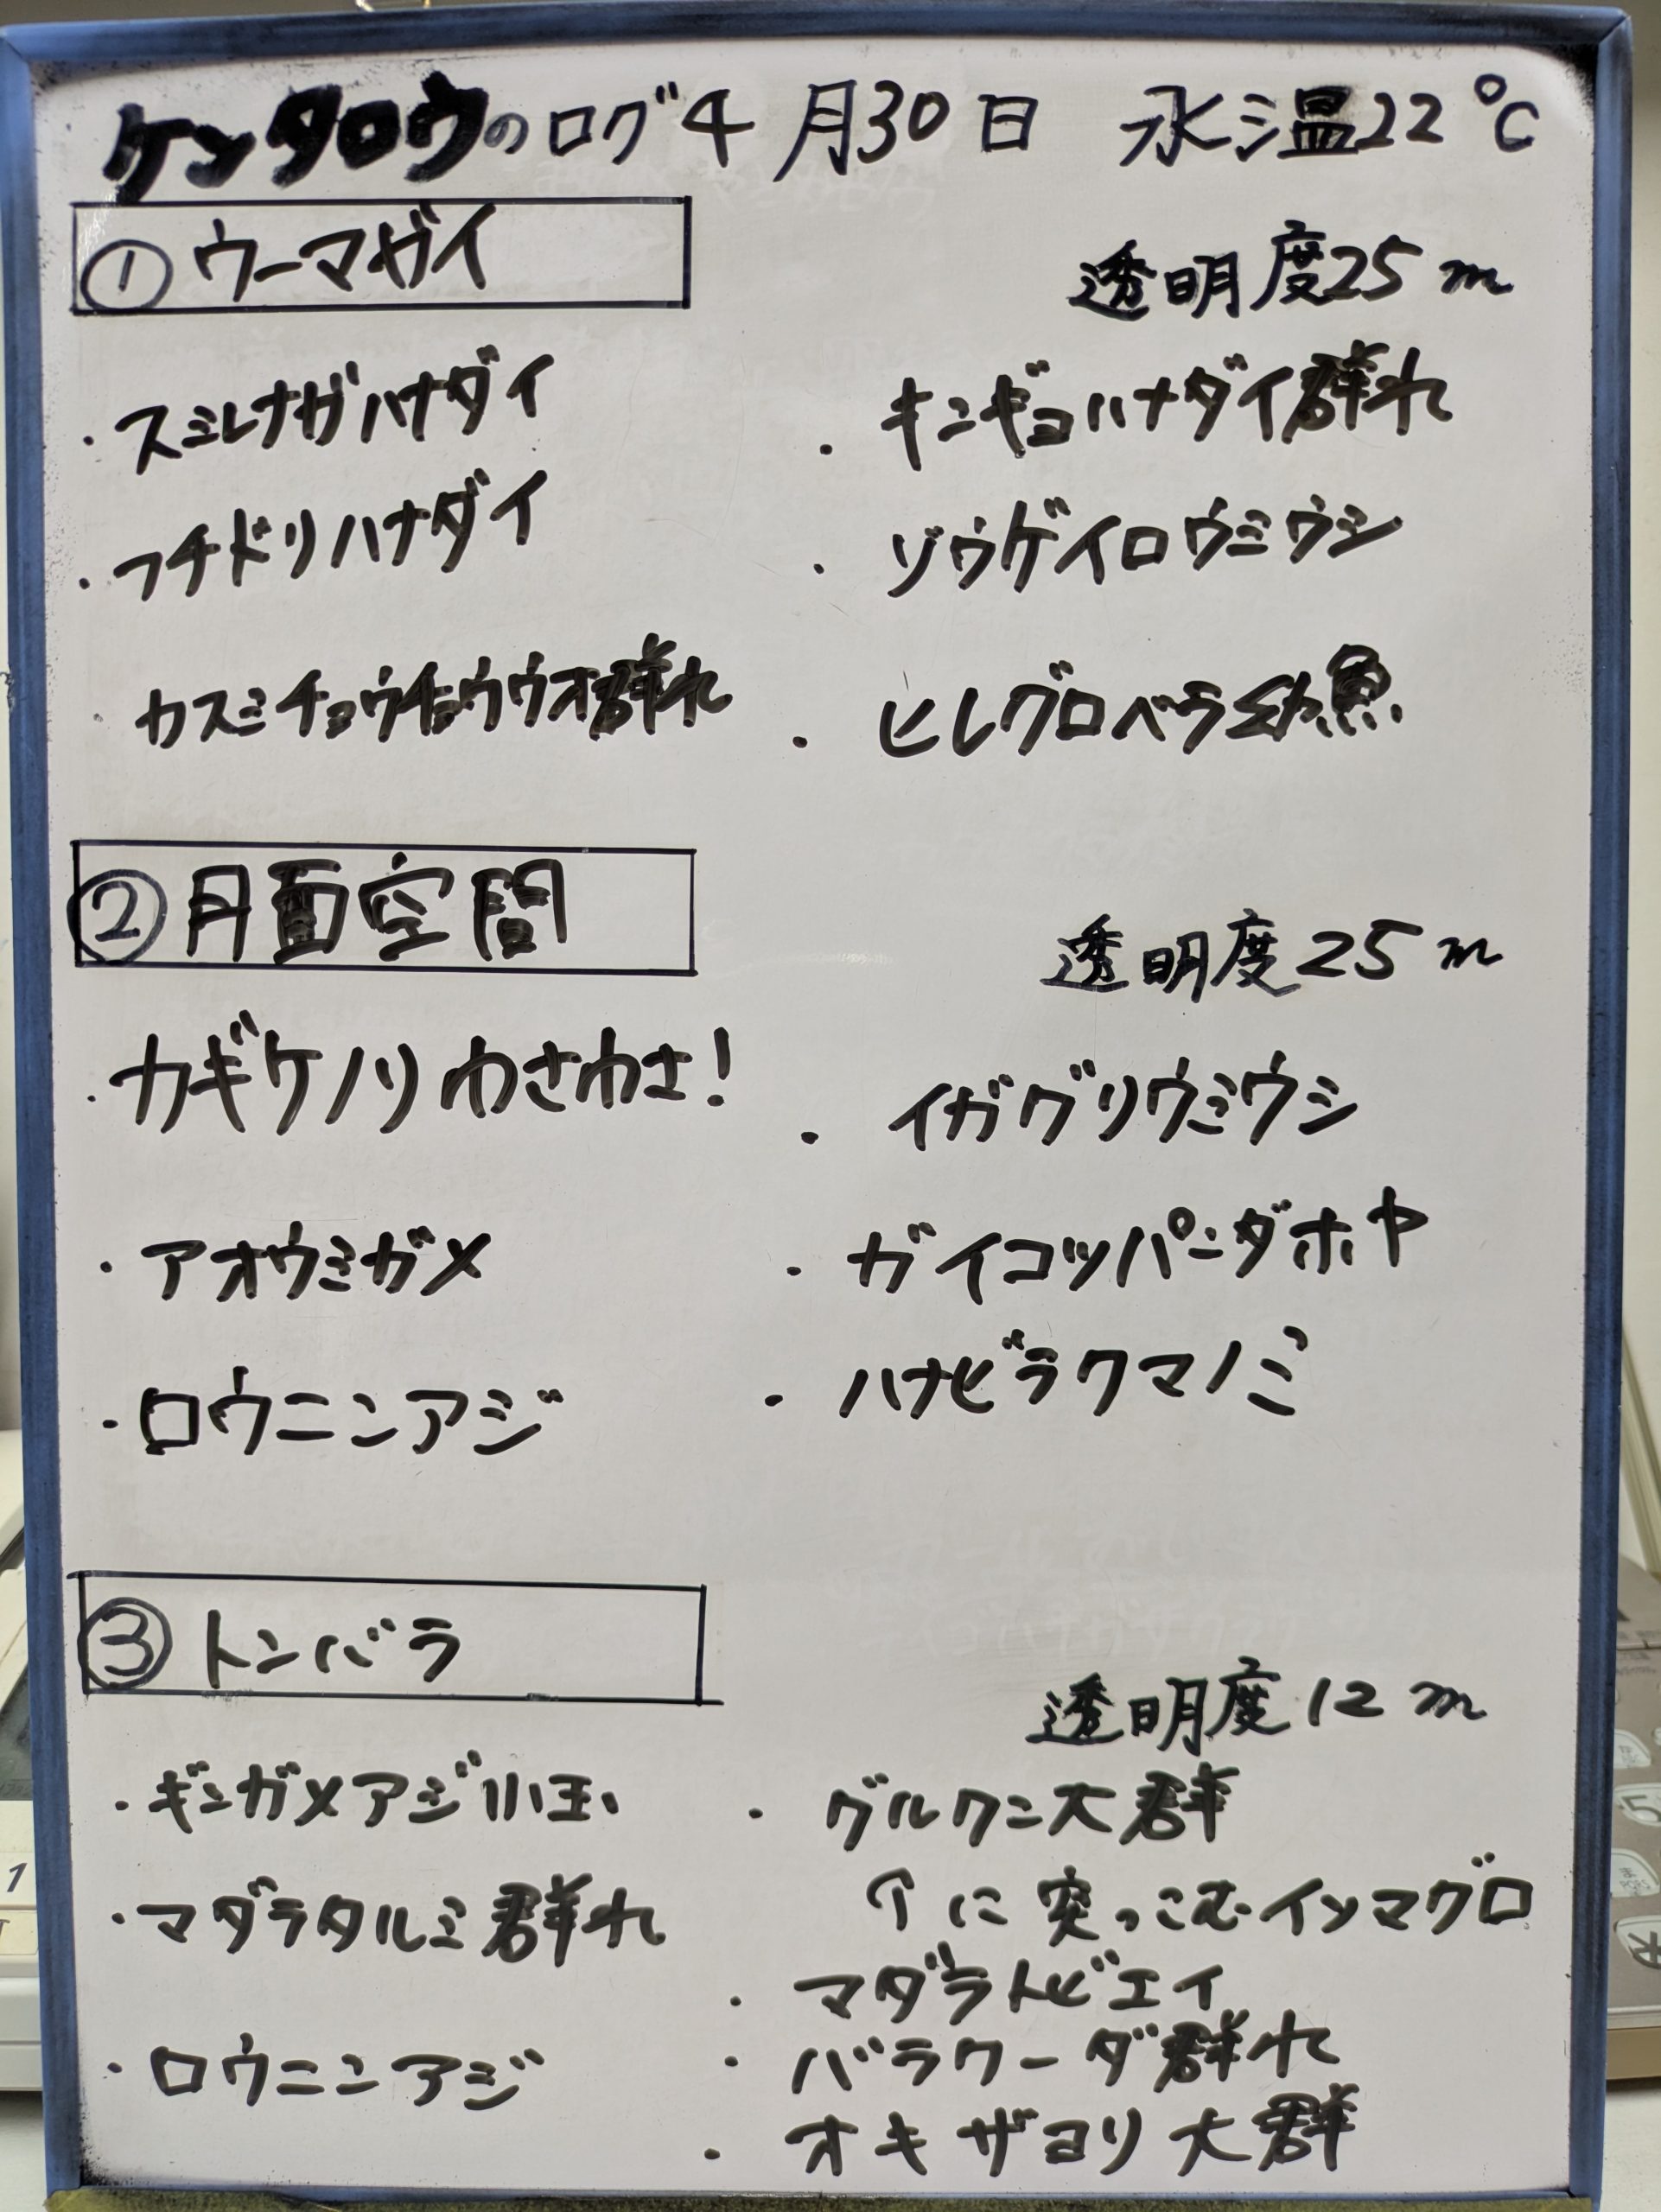 ケンタロウのログ 4月30日 水温22℃
① ウーマガイ
透明度25m
・スミレナガハナダイ
・フチドリハナダイ
・カスミチョウチョウウオ群れ
・キンギョハナダイ群れ
・ゾウゲイロウミウシ
・ヒレグロベラ幼魚
② 月面空間
透明度25m
・カギケノリわさわさ!
・アオウミガメ
・ロウニンアジ
・イガグリウミウシ
・ガイコツパンダホヤ
・ハナビラクマノミ
③ トンバラ
透明度12m
・ギンガメアジ小玉
・マダラタルミ群れ
・ロウニンアジ
・グルクン大群
↑に突っこむイソマグロ
・マダラトビエイ
・バラクーダ群れ
・オキザヨリ大群